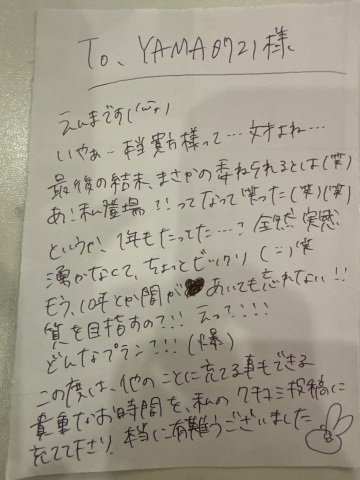 To、YAMA0721様
えんまです(^^)
いやぁ… 当貴方様って…才よね…
最後の結末、まさかの委ねられるとは(笑)
あ!私登場?!ってなって笑った(笑)(笑)
というか、1年もたってた…?全然実感
湧かなくて、ちょっとビックリ(=)笑
もう、10年とか間があいても忘れない!!
質を目指すの?!!えっ?!!!
どんなプラン?!!(爆)
この度は、他のことに充てる事もできる
貴重なお時間を、私のクチコミ投稿に
充てて下さり、本当に有難うございました